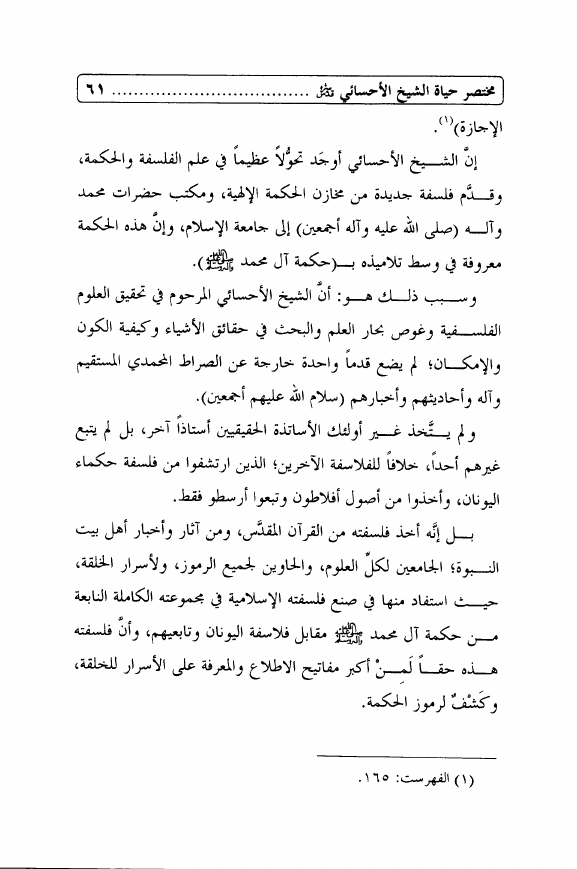 مختصر حياة الشيخ الأحسائي قدس سره .................................... ٦١
الإجازة)(١).
إنَّ الشـــيخ الأحسائي أوجَد تحوُّلاً عظيماً في علم الفلسفة والحكمة،
وقـــدَّم فلسفة جديدة من مخازن الحكمة الإلهية، ومكتب حضرات محمد
وآلـــه (صلى الله عليه وآله أجمعين) إلى جامعة الإسلام، وإنَّ هذه الحكمة
معروفة في وسط تلاميذه بـــ(حكمة آل محمد ﷺ).
وســـبب ذلـــك هـــو: أنَّ الشيخ الأحسائي المرحوم في تحقيق العلوم
الفلســـفية وغوص بحار العلم والبحث في حقائق الأشياء وكيفية الكون
والإمكـــان؛ لم يضع قدماً واحدة خارجة عن الصراط المحمدي المستقيم
وآله وأحاديثهم وأخبارهم (سلام الله عليهم أجمعين).
ولم يـــتَّخذ غـــير أولئك الأساتذة الحقيقيين أستاذاً آخر، بل لم يتبع
غيرهم أحداً، خلافاً للفلاسفة الآخرين؛ الذين ارتشفوا من فلسفة حكماء
اليونان، وأخذوا من أصول أفلاطون وتبعوا أرسطو فقط.
بـــل إنَّه أخذ فلسفته من القرآن المقدَّس، ومن آثار وأخبار أهل بيت
النـــبوة؛ الجامعين لكلِّ العلوم، والحاوين لجميع الرموز، ولأسرار الخلقة،
حيـــث استفاد منها في صنع فلسفته الإسلامية في مجموعته الكاملة النابعة
مـــن حكمة آل محمد ﷺ مقابل فلاسفة اليونان وتابعيهم، وأنَّ فلسفته
هـــذه حقـــاً لَمِـــنْ أكبر مفاتيح الاطلاع والمعرفة على الأسرار للخلقة،
وكَشْفٌ لرموز الحكمة.
(١) الفهرست: ١٦٥.